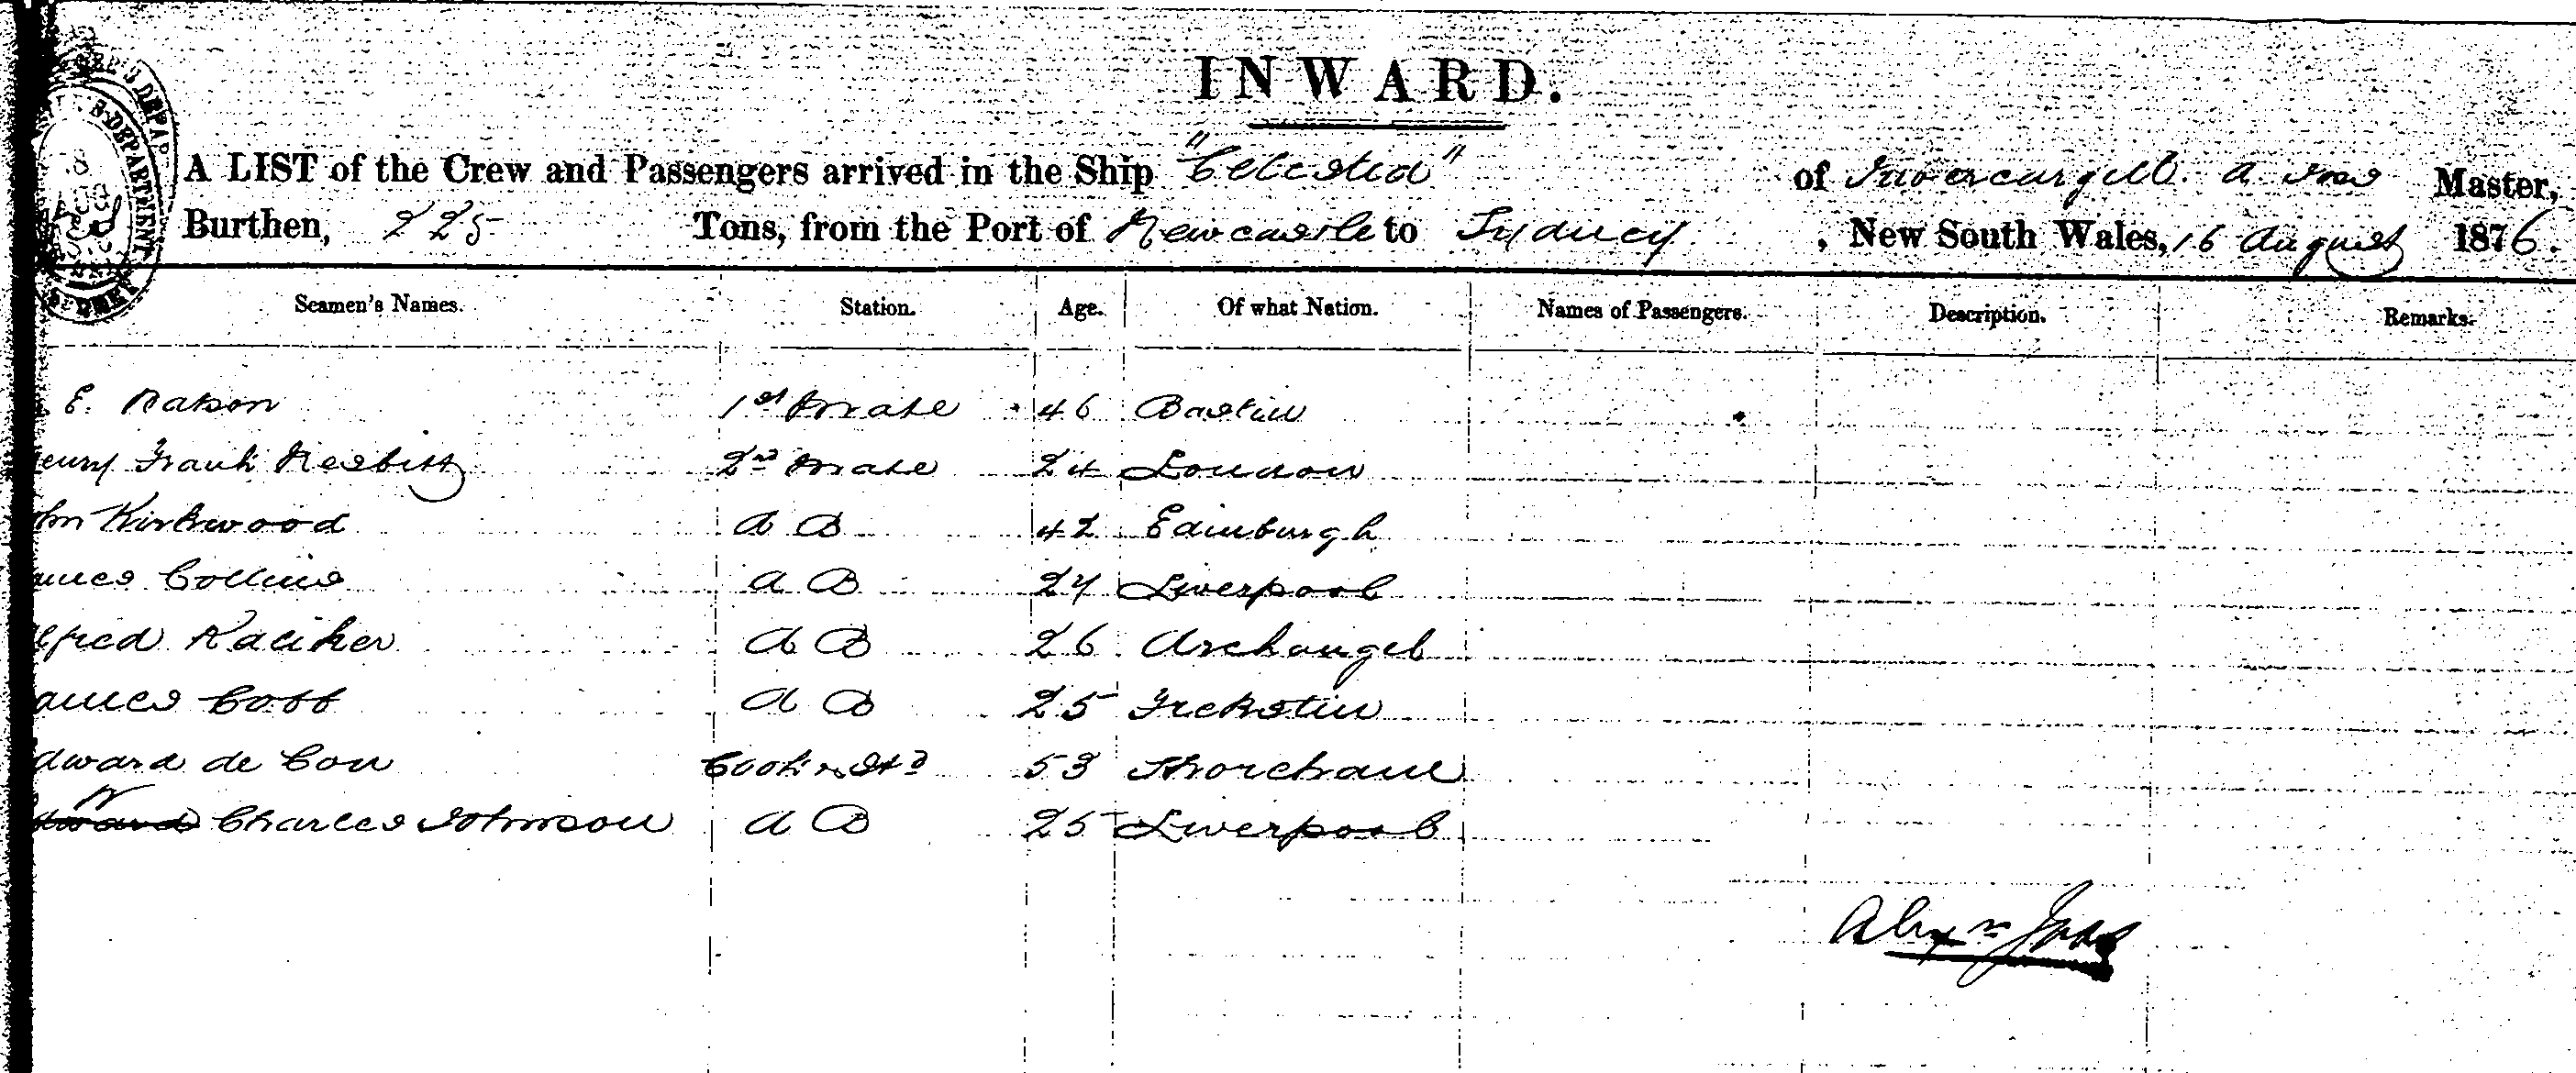 INWARD.
A LIST of the Crew and Passengers arrived in the Ship "Celestia" of Invercargill. A Master,
Burthen, 225 Tons, from the Port of Newcastle to Sydney, New South Wales, 16 August 1876.
Seamen's Names. Station. Age. Of what Nation. Names of Passengers. Description. Remarks.
E. 1st Mate 46
enry Frank Nesbitt 2nd Mate 24 London
ohn Kirkwood A B 42 Edinburgh
ames Collins A B 24 Liverpool
lfred A B 26 Archangel
ames Cobb A B 25
dward de Cou Cook & Std 53 Shoreham
W Charles Johnson A B 25 Liverpool